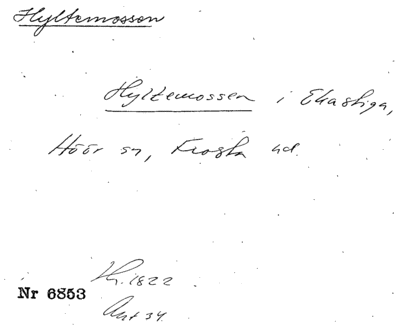 Hyltemossen
Hyltemossen i Ekastiga,
Höör sn, Frosta hd.
Nr 6853